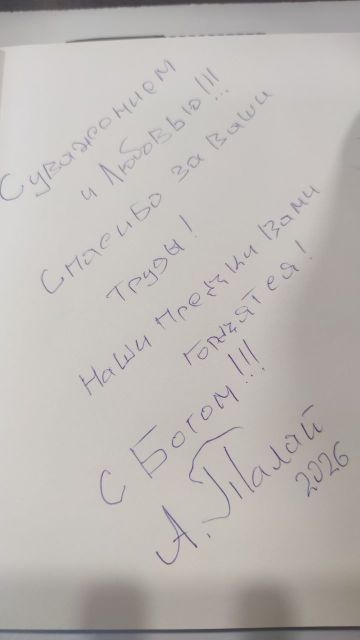 С уважением
и Любовью!!!
Спасибо за Ваши
труды!
Наши предки Вами
гордятся!
С Богом!!!
А. Талай
2026